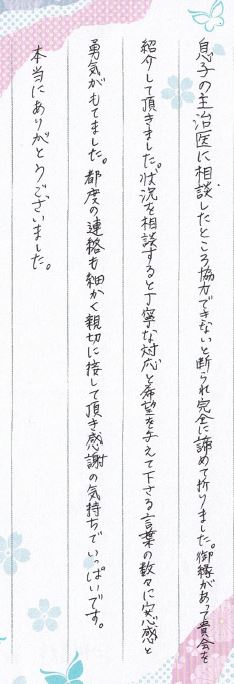 息子の主治医に相談したところ協力できないと断られ完全に諦めて折りました。御縁があって貴会を
紹介して頂きました。状況を相談すると丁寧な対応と希望を与えて下さる言葉の数々に安心感と
勇気がもてました。都度の連絡も細かく親切に接して頂き感謝の気持ちでいっぱいです。
本当にありがとうございました。